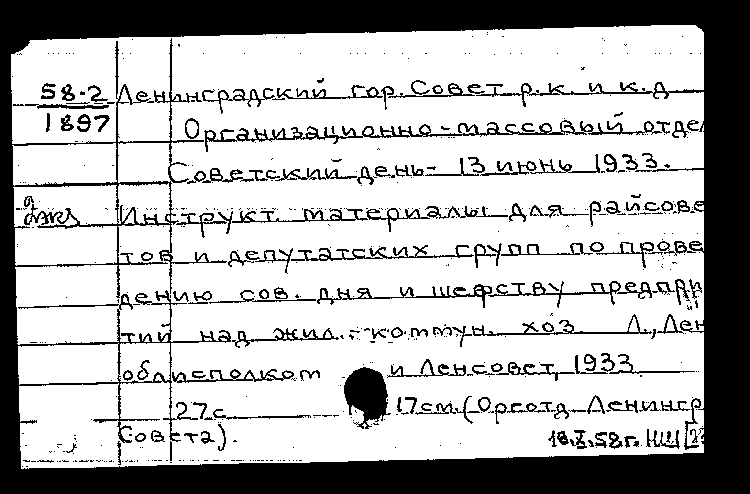 58-2 Ленинградский гор. Совет р.к. и к.д
1897 Организационно-массовый отде
Советский день- 13 июнь 1933.
Инструкт. материалы для райсове
тов и депутатских групп по прове
дению сов. дня и шефству предпри
тий над жил.-коммун. хоз. Л., Лен
облисполком и Ленсовет, 1933
27с. 17см. (Оргота. Ленингр
Совета).
18.X.58г. НШ